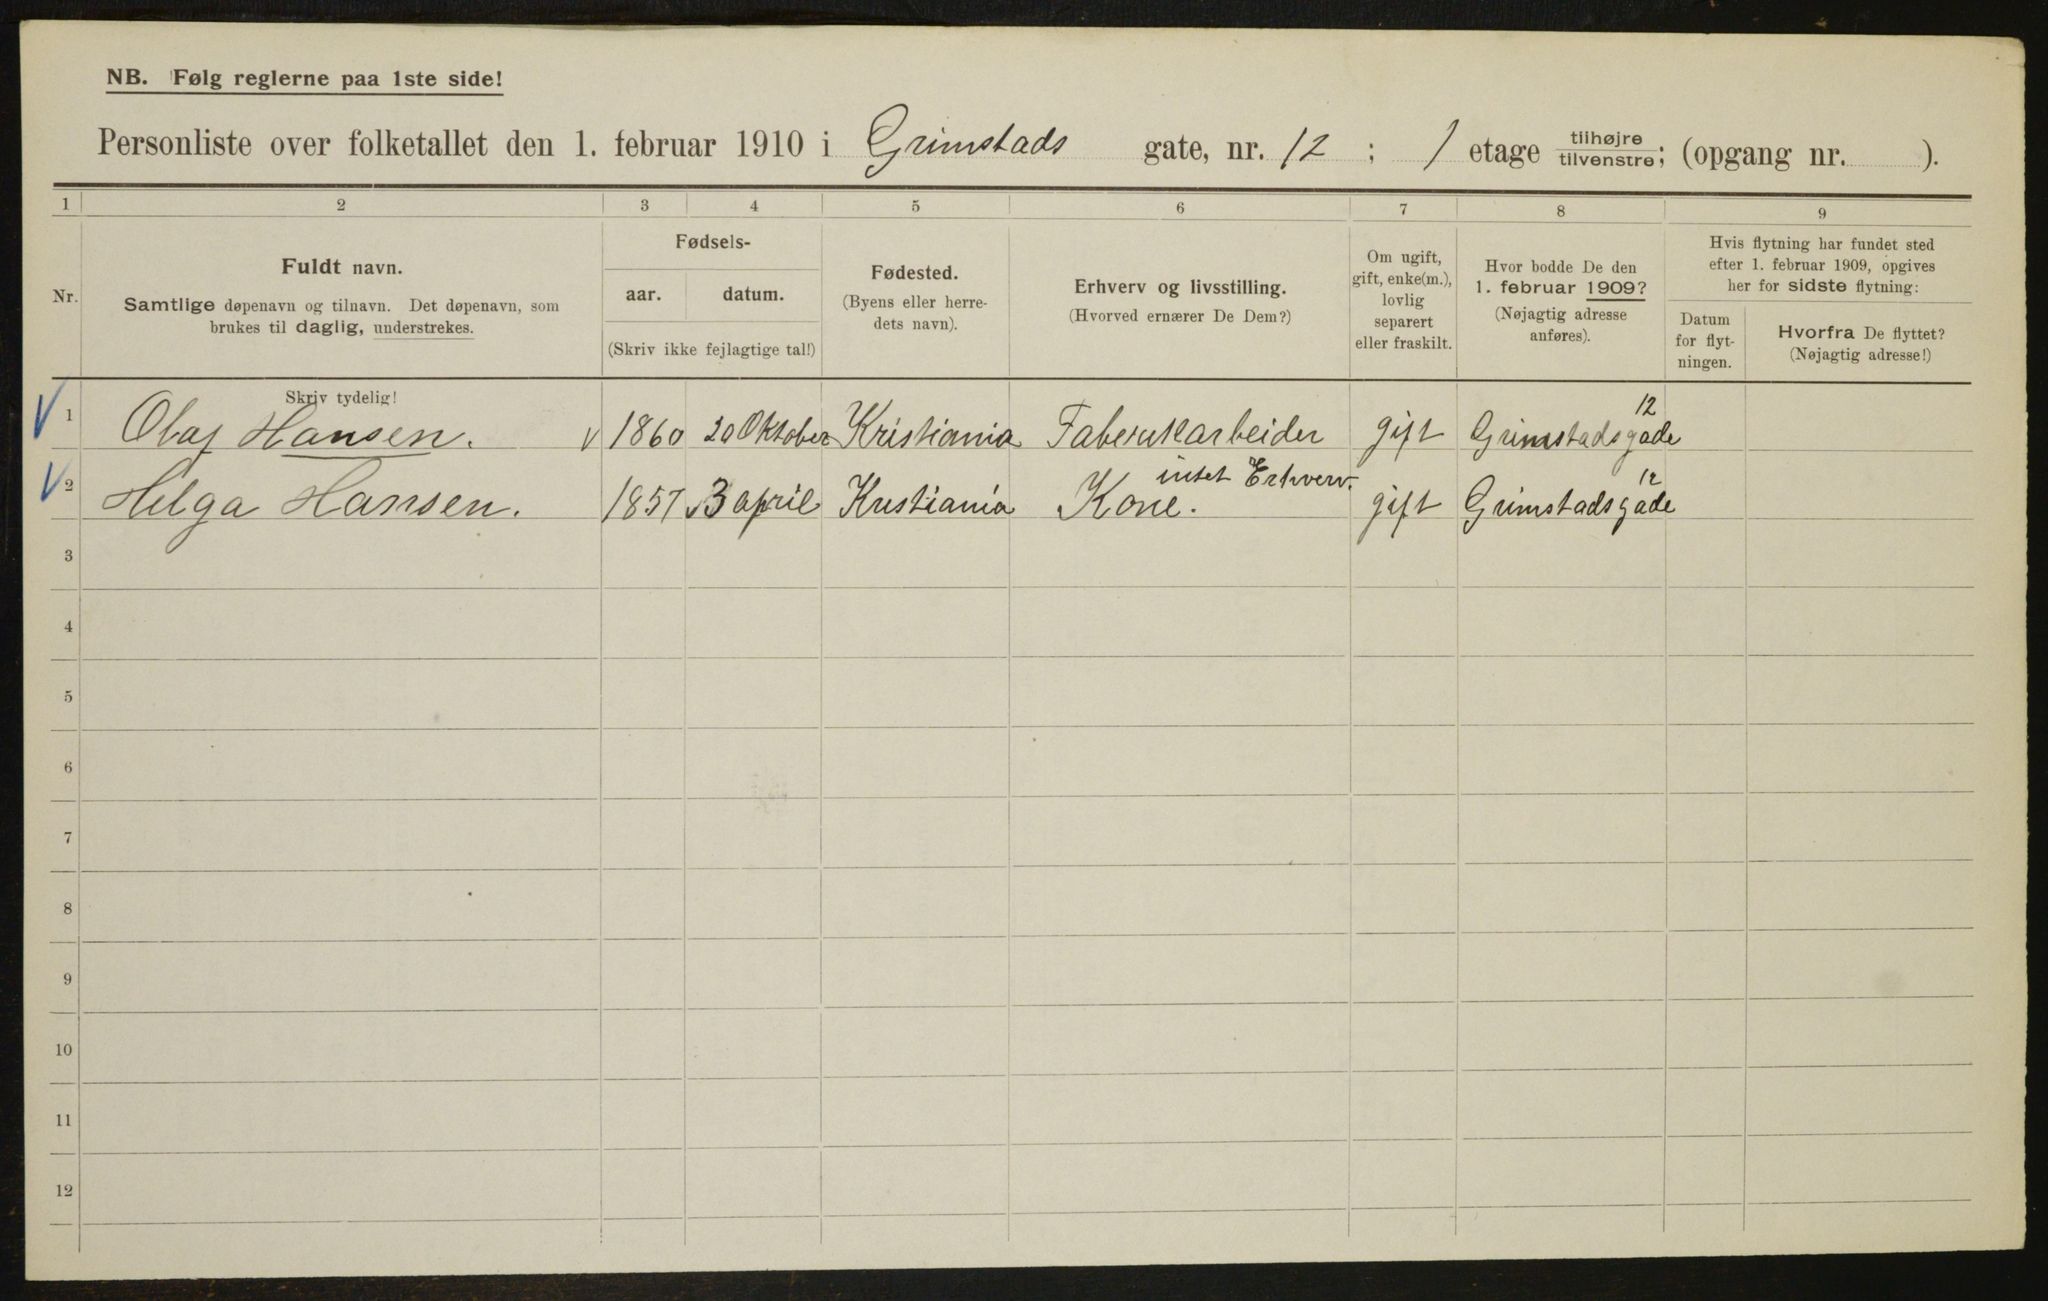 NB. Følg reglerne paa 1ste side!
Personliste over folketallet den 1. februar 1910 i Grimstads gate, nr. 12 ; 1 etage tilhøjre tilvenstre; (opgang nr. ).
1 2 3 4 5 6 7 8 9
Nr.
Fuldt navn.
Samtlige døpenavn og tilnavn. Det døpenavn, som
brukes til daglig, understrekes.
Fødsels-
aar. datum.
(Skriv ikke fejlagtige tal!)
Fødested.
(Byens eller herre-
dets navn).
Erhverv og livsstilling.
(Hvorved ernærer De Dem?)
Om ugift,
gift, enke(m.),
lovlig
separert
eller fraskilt.
Hvor bodde De den
1. februar 1909?
(Nøjagtig adresse
anføres).
Hvis flytning har fundet sted
efter 1. februar 1909, opgives
her for sidste flytning:
Datum
for flyt-
ningen.
Hvorfra De flyttet?
(Nøjagtig adresse!)
Skriv tydelig!
1 Olaf Hansen. 1860 20 Oktober Kristiania Faberikarbeider gift Grimstadsgade 12
2 Helga Hansen. 1857 3 april Kristiania Kone. intet Erhverv. gift Grimstadsgade 12
3
4
5
6
7
8
9
10
11
12